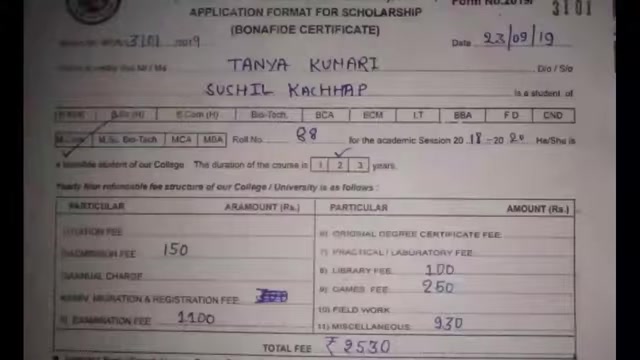 Form No.2019/ 3101
APPLICATION FORMAT FOR SCHOLARSHIP
(BONAFIDE CERTIFICATE)
3101 2019 Date 23/09/19
TANYA KUMARI D/o / S/o
SUCHIL KACHHAP is a student of
B.Sc (H) B.Com (H) Bio-Tech. BCA BCM I.T BBA F D CND
M.Com M.Sc. Bio-Tech MCA MBA Roll No. 88 for the academic Session 2018-2020 He/She is
a bonafide student of our College. The duration of the course is 1 2 3 years.
Yearly Non refundable fee structure of our College / University is as follows :
PARTICULAR AMOUNT (Rs.) PARTICULAR AMOUNT (Rs.)
TUITION FEE 6) ORIGINAL DEGREE CERTIFICATE FEE
ADMISSION FEE 150 7) PRACTICAL / LABORATORY FEE
ANNUAL CHARGE 8) LIBRARY FEE 100
MIGRATION & REGISTRATION FEE 9) GAMES FEE 250
5) EXAMINATION FEE 1100 10) FIELD WORK
11) MISCELLANEOUS 930
TOTAL FEE ₹ 2530